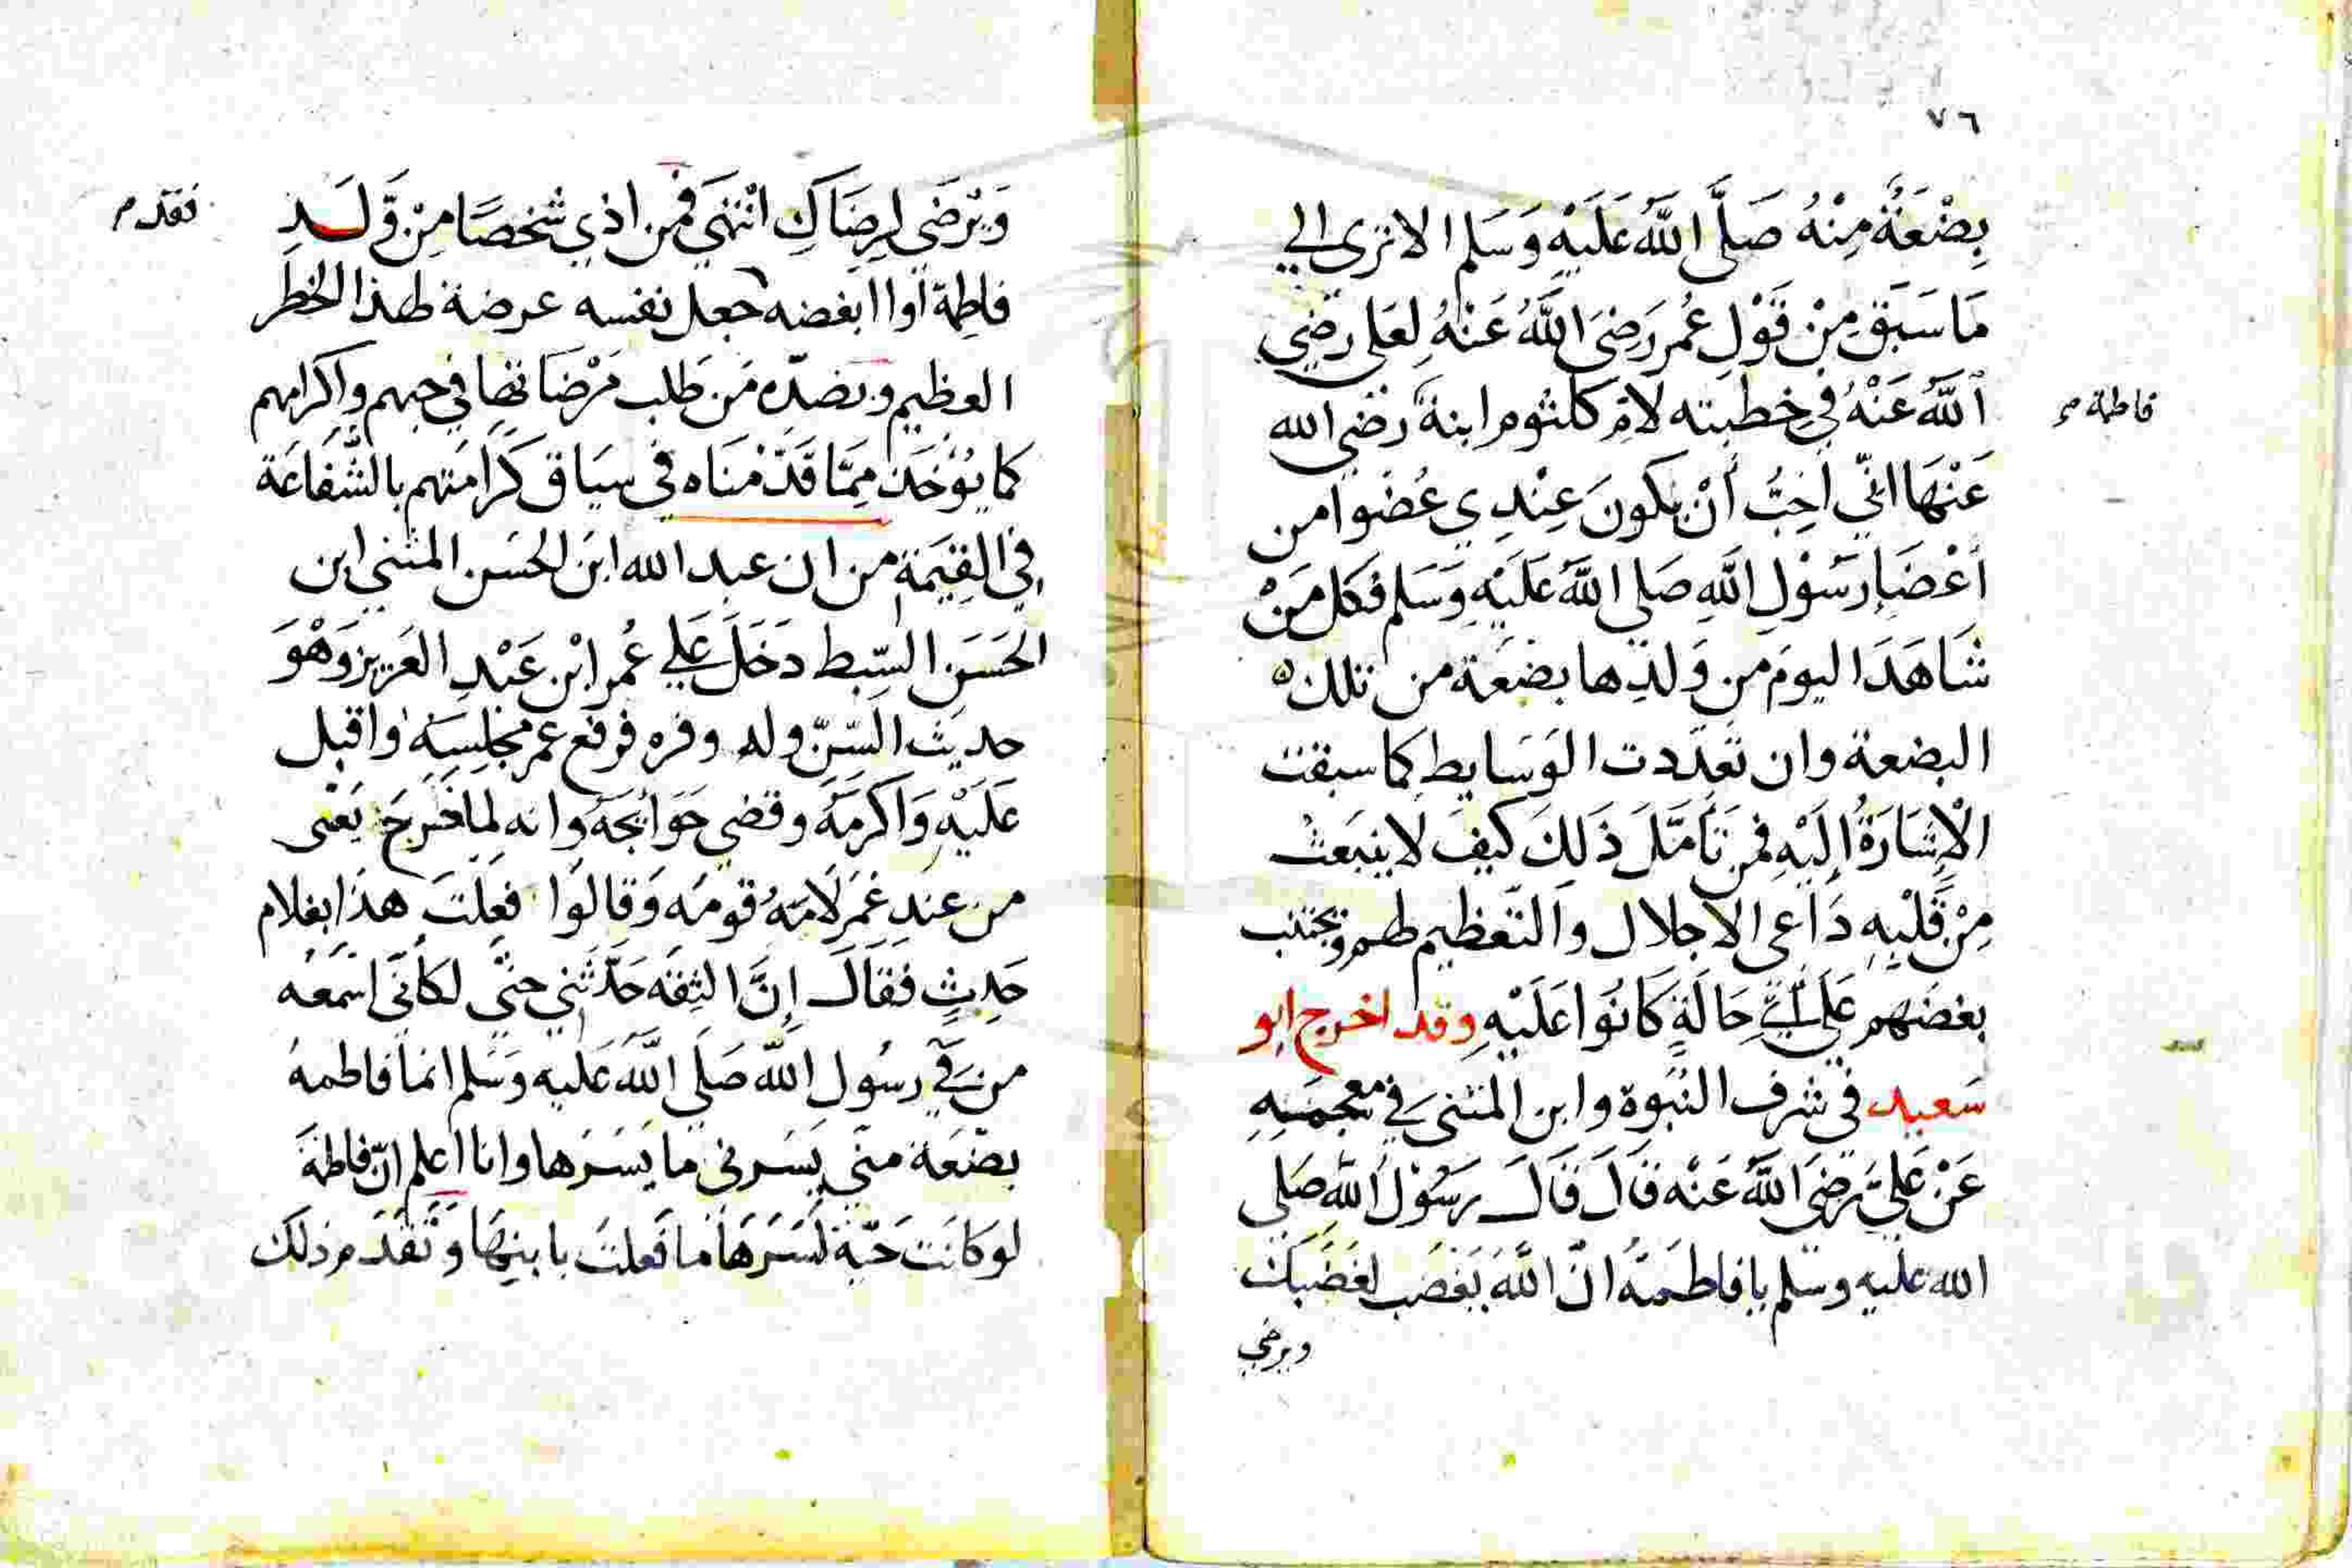 ٧٦
بِضْعَةٌ مِنْهُ صَلَّى اللَّهُ عَلَيْهِ وَسَلم الا ترى الي
مَا سَبَقَ مِنْ قَوْلِ عُمر رَضِىَ اللَّهُ عَنْهُ لِعَلى رضِي
اللَّهُ عَنْهُ فِي خطبته لامِّ كلثوم ابنة رضي الله
فاطمة م
عَنْهَا انّي احِبُّ أَنْ يكونَ عِنْدِي عُضْوا من
أعْضَاءِ رسُوْلِ اللَّهِ صَلي اللَّهُ عَلَيْهِ وَسَلم فكل مَنْ
شَاهَدَ اليومَ من وَلدِها بضعَة من تلك
البضعة وان تعدّدت الوَسَايط كما سبقت
الْاِشَارَةُ اِلَيْهِ فمن تَأمَّلَ ذَلِكَ كيفَ لا ينبَعث
مِنْ قَلْبِهِ دَاعى الاجلال والتعْظيم لهم ويجتنب
بغضَهم عَلي اَيِّ حَالَةٍ كَانُوا عَلَيْهِ وقد اخرج ابو
سَعيد في شرف النبوة وابن المثنى في معجمَهِ
عَنْ عَليّ رضِيَ اللَّهُ عَنْه قالَ قَالَ رسُوْل اللهِ صَلي
الله عليه وسلم يا فاطمَةُ انّ اللَّهَ يَغضَب لغَضَبِكَ
ويرضي
وَيَرْضَى لِرضَاكِ انْتَهَي فمن اذي شخصًا مِنْ وَلَدِ
فقد م
فاطِمة أوا ابغضه جعل نفسه عرضة لهذا الخطَر
العظيم وبضدّه مَن طلب مَرْضَاتها في حبهم واكرامهم
كما يُؤخَذ مِمّا قَدّمْنَاه في سيَاق كَرامَتهم بالشَّفاعَة
في القِيٰمَة من ان عبد الله ابَن الحسَن المثني ابن
الحَسَن السّبط دَخَلَ عَلي عُمر ابْن عَبْدِ العَزيز وَهْوَ
حديث السّنّ وله وفره فرفع عمر مجلِسَهُ واقبل
عَلَيْهِ وَاَكرمَهُ وقضي حَوَايجَهُ وانه لما خَرجَ يَعْنى
من عندِ عُمَر لَامَهُ قومَه وَقالوا فعلتَ هذا بغلام
حَدِيثٍ فقالَ اِنَّ الثِقَه حَدّثَنِي حتّي لكأنّي اسمَعُه
من فِي رسُول اللَّه صَلي اللَّهُ عَليه وَسَلم انما فاطمهُ
بضْعَة منّي يسُرني ما يَسُرُها وانا اعلم انّ فاطمةَ
لو كانت حَيّة لسَرّهَا ما فعلتَ بابنِهَا وَتقدَم ذلك